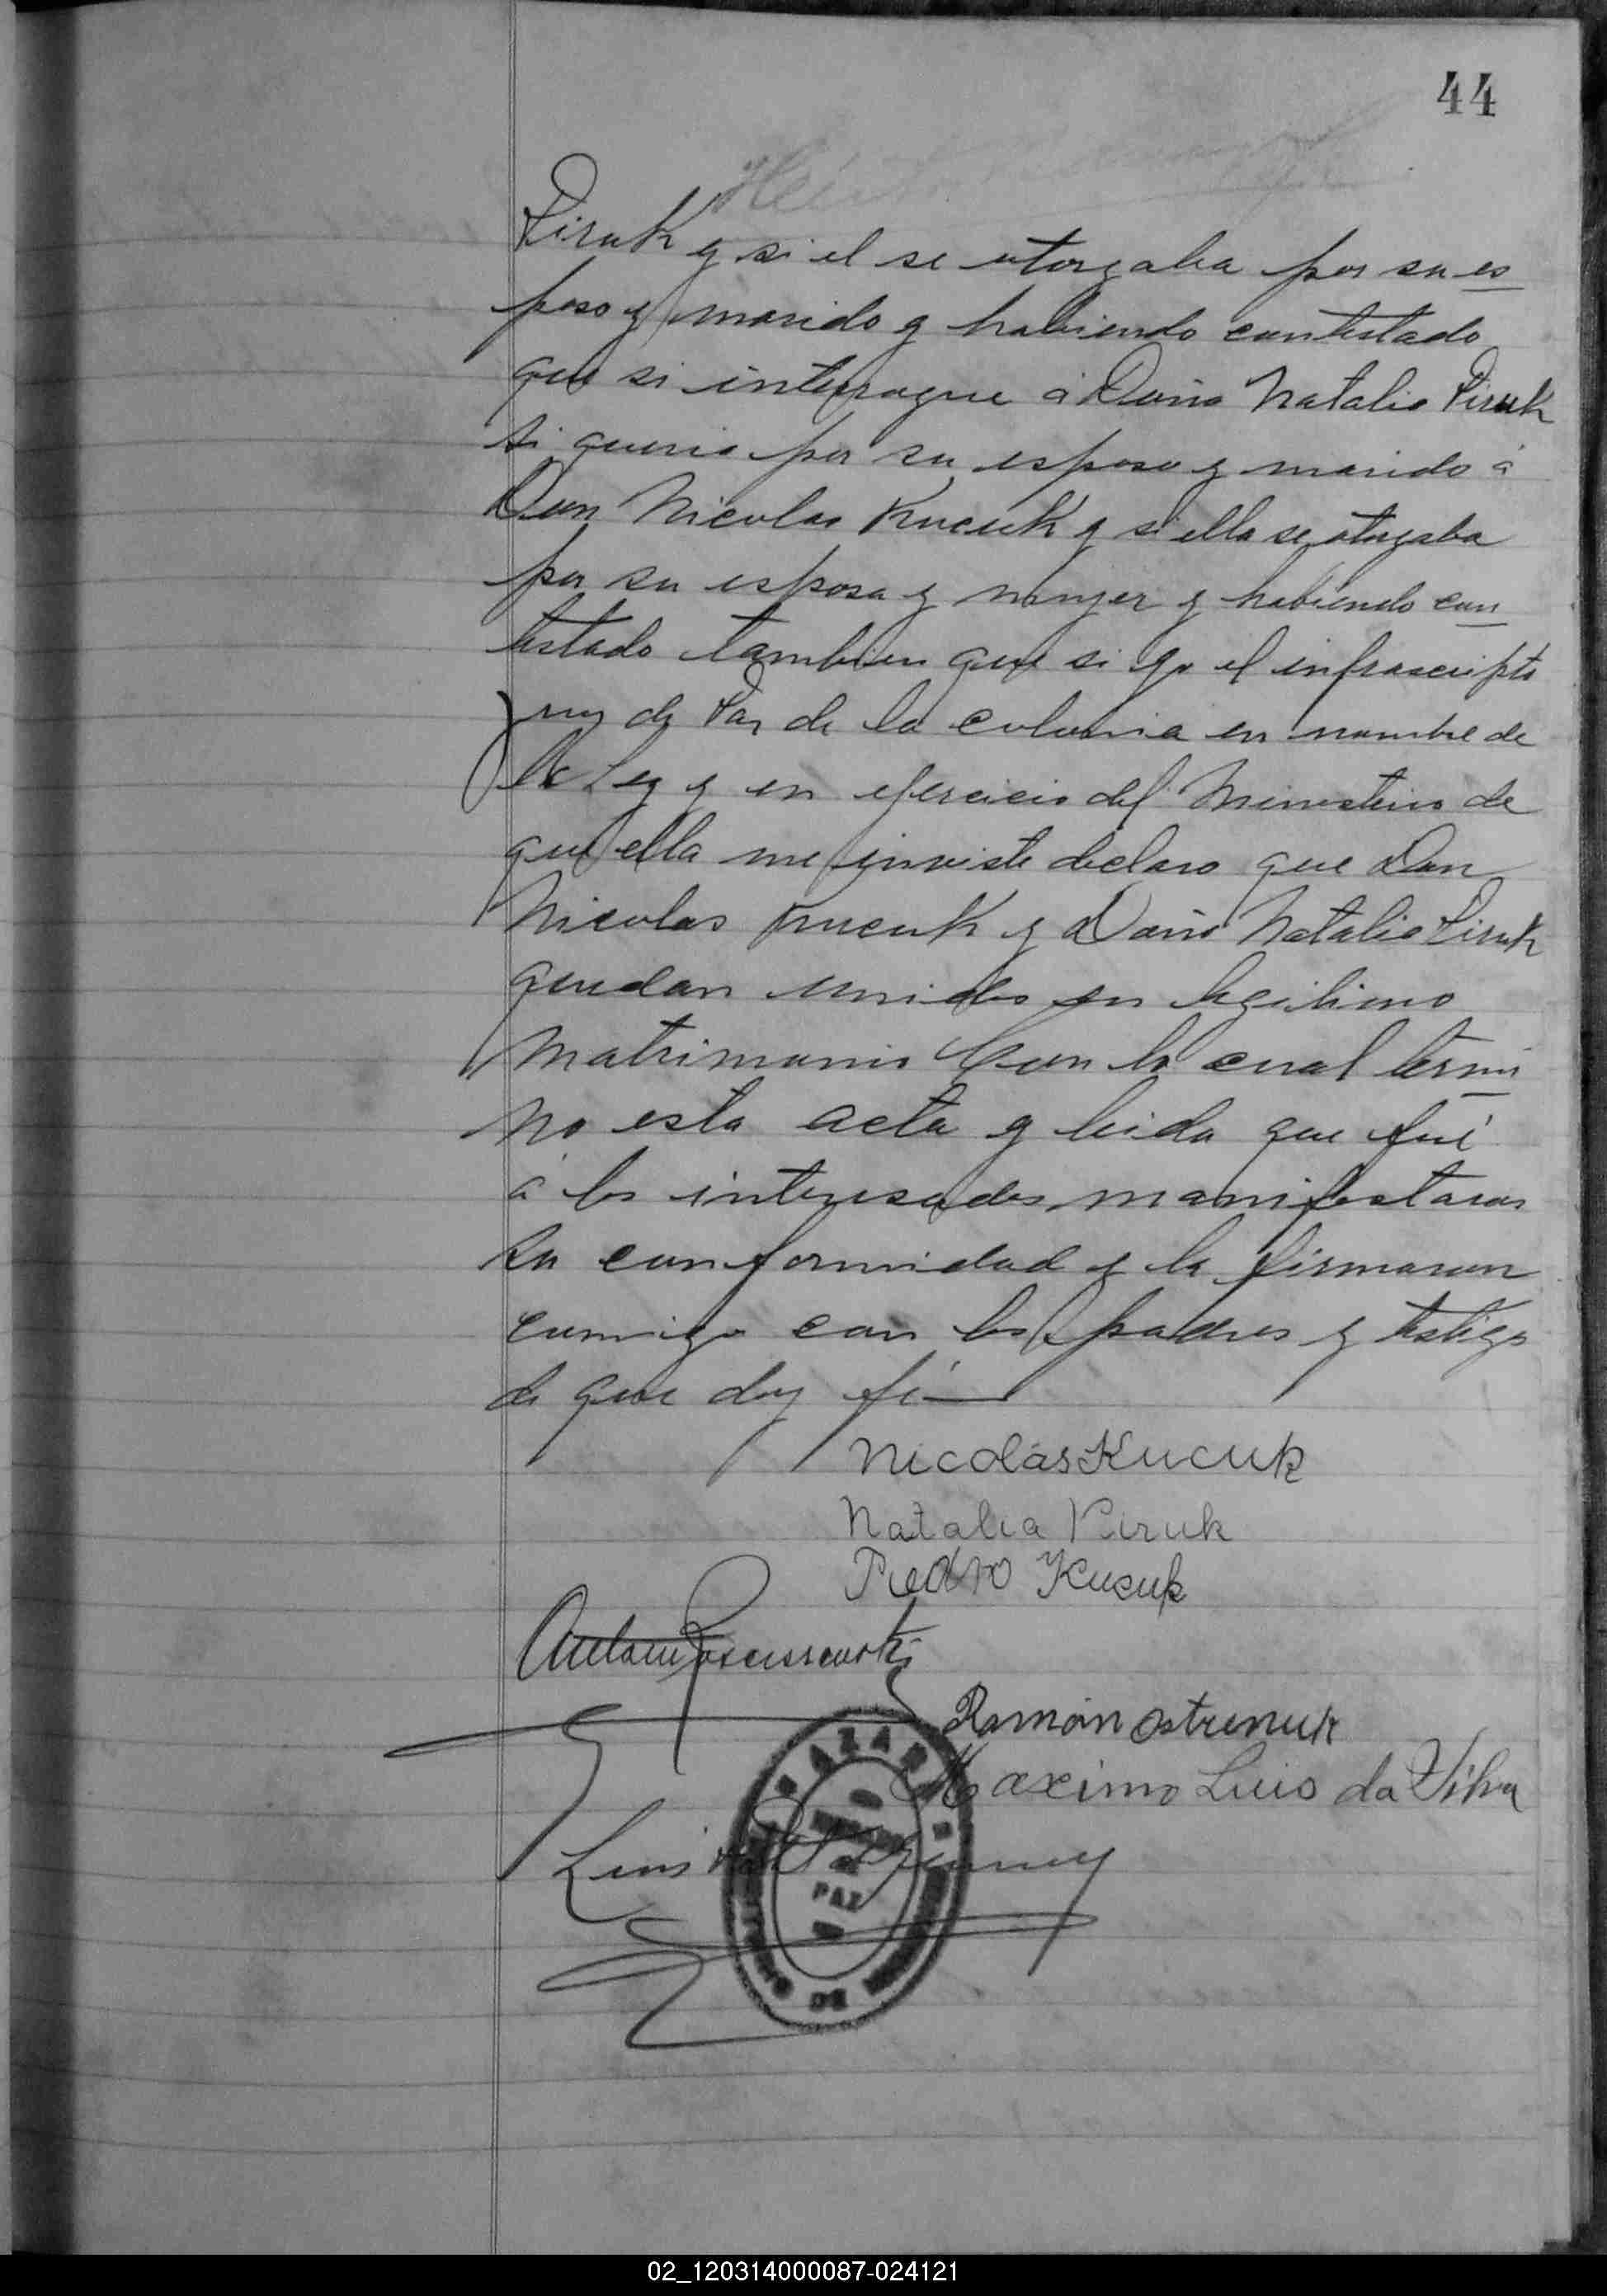 44
Piruk y si el se otorgaba por su es
poso y marido y habiendo contestado
que si interrogue á Doña Natalia Piruk
si queria por su esposo y marido á
Don Nicolas Kucuk y si ella se otorgaba
por su esposa y mujer y habiendo con
testado tambien que si yo el infrascripto
Juez de Paz de la colonia en nombre de
la Ley y en ejercicio del Ministerio de
que ella me inviste declaro que Don
Nicolas Kucuk y Doña Natalia Piruk
quedan unidos en legitimo
matrimonio Con lo cual termi
no esta acta y leida que fué
á los interesados manifestaron
su conformidad y la firmaron
conmigo con los padres y testigos
de que doy fé
Nicolás Kucuk
Natalia Piruk
Pedro Kucuk
Ramón Ostrenuk
Maximo Luis da Silva
Luis
AZARA
DE
PAZ
DE
02_120314000087-024121